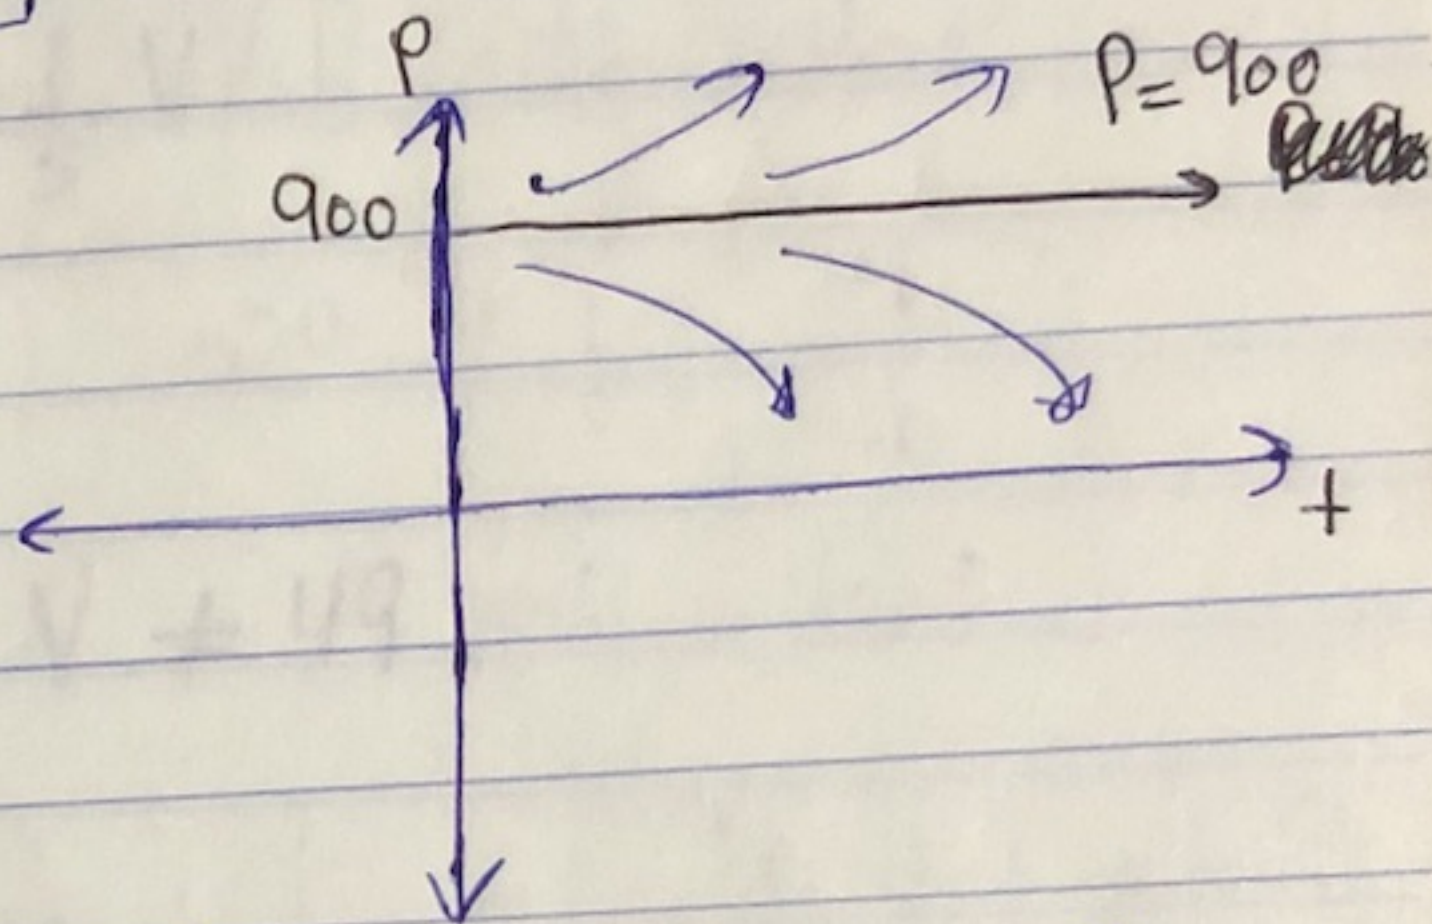 P
P = 900
900
t